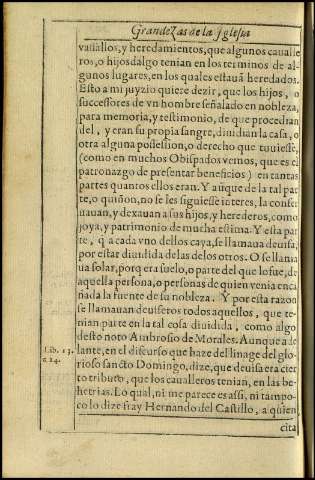 Grandezas de la Iglesia
vassallos, y heredamientos, que algunos cavalle
ros, o hijosdalgo tenian en los terminos de al-
gunos lugares, en los quales estauã heredados.
Esto a mi juyzio quiere dezir, que los hijos, o
successores de vn hombre señalado en nobleza,
para memoria, y testimonio, de que procedian
del, y eran su propia sangre, diuidian la casa, o
otra alguna possession, o derecho que tuuiesse,
(como en muchos Obispados vemos, que es el
patronazgo de presentar beneficios) en tantas
partes quantos ellos eran. Y aũque de la tal par
te, o quiñon, no se les siguiesse interes, la conser
uauan, y dexauan a sus hijos, y herederos, como
joya, y patrimonio de mucha estima. Y esta par
te, q̃ a cada vno dellos caya, se llamaua deuisa,
por estar diuidida de las de los otros. O se llama
ua solar, porq̃ era suelo, o parte del que lo fue, de
aquella persona, o personas de quien venia enca
ñada la fuente de su nobleza. Y por esta razon
se llamauan deuiseros todos aquellos, que te-
nian parte en la tal cosa diuidida, como algo
desto noto Ambrosio de Morales. Aunque ade
Lib. 13.
c. 14.
lante, en el discurso que haze del linage del glo-
rioso sancto Domingo, dize, que deuisa era cier
to tributo, que los caualleros tenian, en las be-
hetrias. Lo qual, ni me parece es assi, ni tampo-
co lo dize fray Hernando del Castillo, a quien
cita